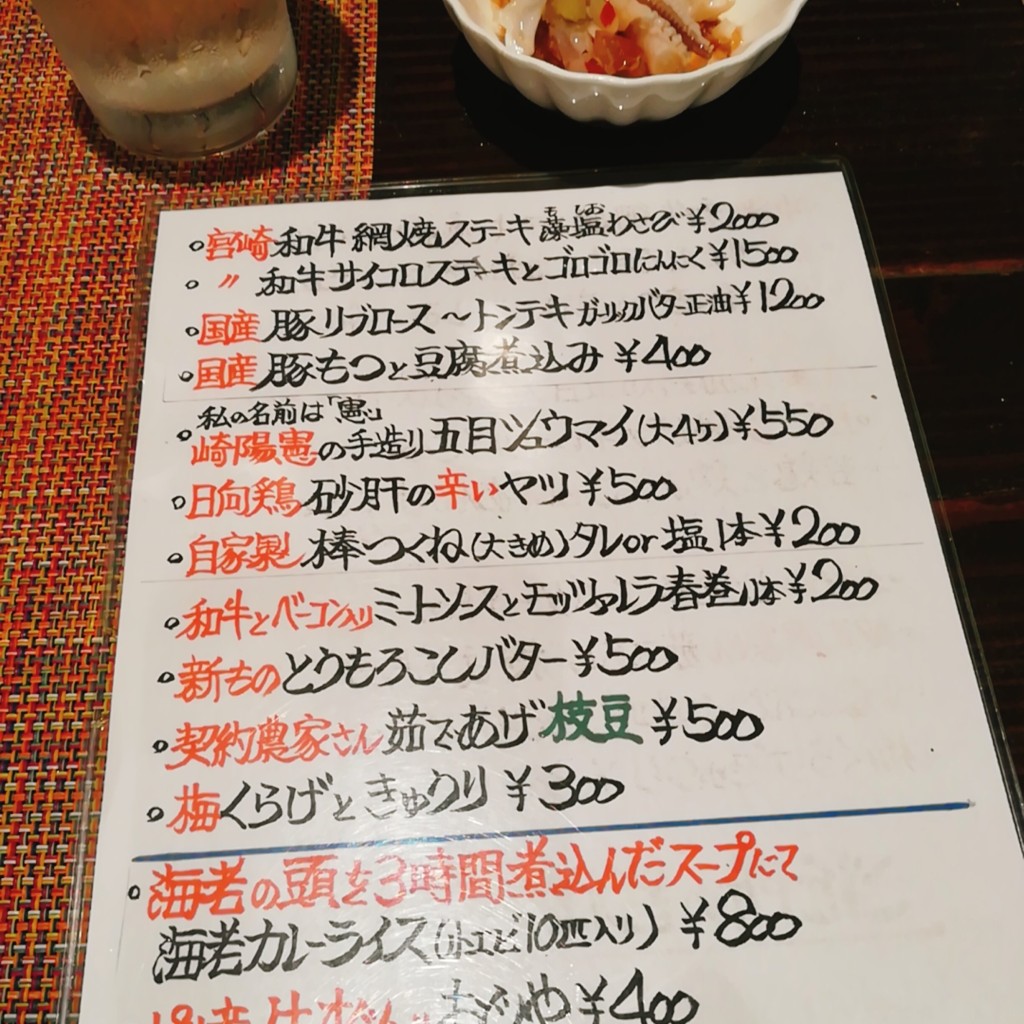 宮崎和牛網焼ステーキ藻塩わさび¥2000
〃 和牛サイコロステーキとゴロゴロにんにく¥1500
国産豚リブロース～トンテキガーリックバター正油¥1200
国産豚もつと豆腐煮込み ¥400
私の名前は「憲」
崎陽憲の手造り五目シュウマイ(大4ケ)¥550
日向鶏砂肝の辛いヤツ¥500
自家製棒つくね(大きめ)タレor塩1本¥200
和牛とベーコン入りミートソースとモッツァレラ春巻1本¥200
新ものとうもろこしバター¥500
契約農家さん茹であげ枝豆¥500
梅くらげときゅうり¥300
海老の頭を3時間煮込んだスープにて
海老カレーライス(小エビ10匹入り)¥800
¥400